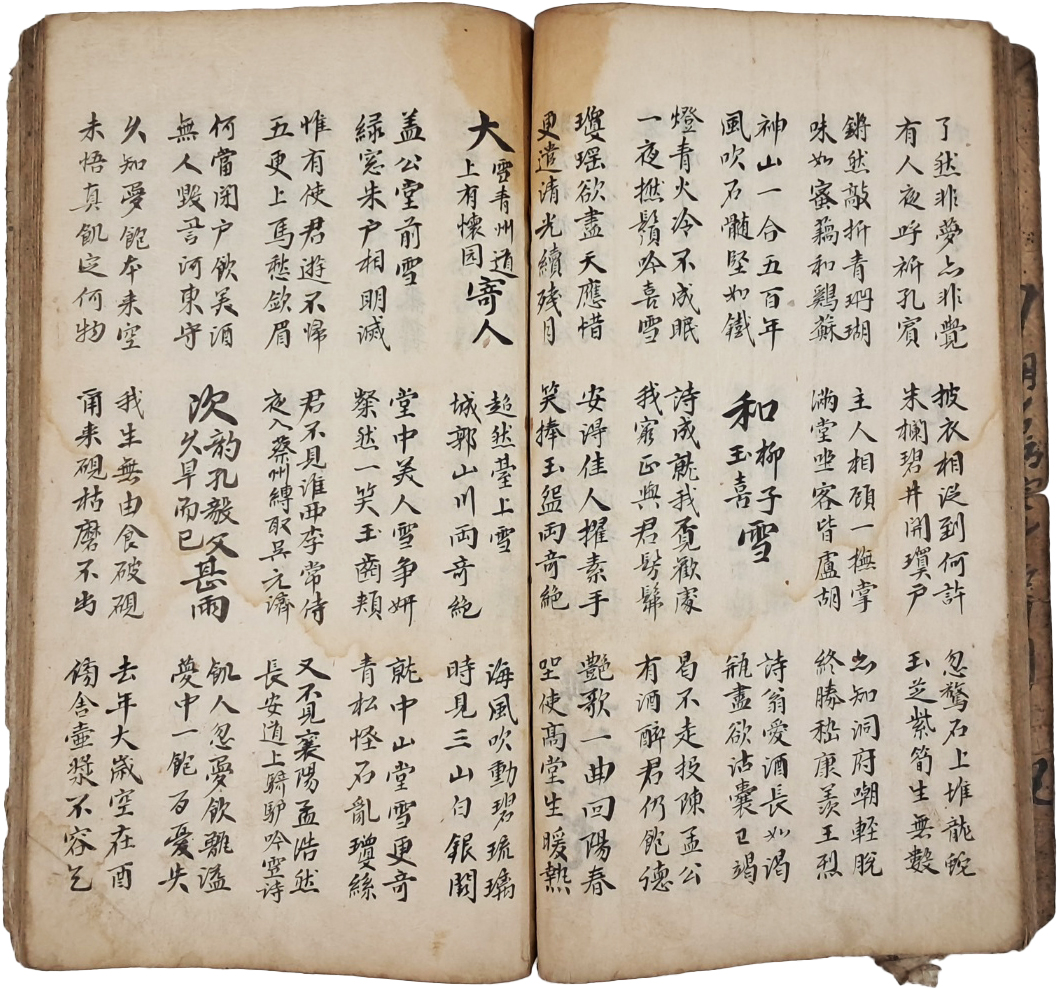 了然非夢亦非覺
有人夜呼祈孔賓
披衣相從到何許
朱欄碧井開瓊戶
忽驚石上堆龍蛇
玉芝紫筍生無數
鏘然敲折青珊瑚
味如蜜藕和鷄蘇
主人相顧一撫掌
滿堂坐客皆盧胡
亦知洞府嘲輕脫
終勝嵇康羨王烈
神山一合五百年
風吹石髓堅如鐵
和柳子玉喜雪
詩翁愛酒長如渴
瓶盡欲沽囊已竭
燈青火冷不成眠
一夜撚鬚吟喜雪
詩成就我覓歡處
我窮正與君髣髴
曷不走投陳孟公
有酒醉君仍飽德
瓊瑤欲盡天應惜
更遣清光續殘月
安得佳人擢素手
笑捧玉盌両奇絶
艷歌一曲回陽春
坐使高堂生暖熱
大雪青州道上有懷园寄人
超然臺上雪
城郭山川両奇絶
海風吹動碧琉璃
時見三山白銀闕
盖公堂前雪
緑窓朱户相明滅
堂中美人雪争妍
粲然一笑玉齒頰
就中山堂雪更奇
青松怪石亂瓊絲
惟有使君遊不歸
五更上馬愁斂眉
君不見淮西李常侍
夜入蔡州縛取吳元濟
又不見襄陽孟浩然
長安道上騎驢吟雪詩
何當閉户飲美酒
無人毀誉河東守
次韵孔毅父久旱而已甚雨
飢人忽夢飲甑溢
夢中一飽百憂失
久知夢飽本來空
未悟真飢定何物
我生無由食破硯
甭来硯枯磨不出
去年大歲空在酉
傍舍壺漿不容乞